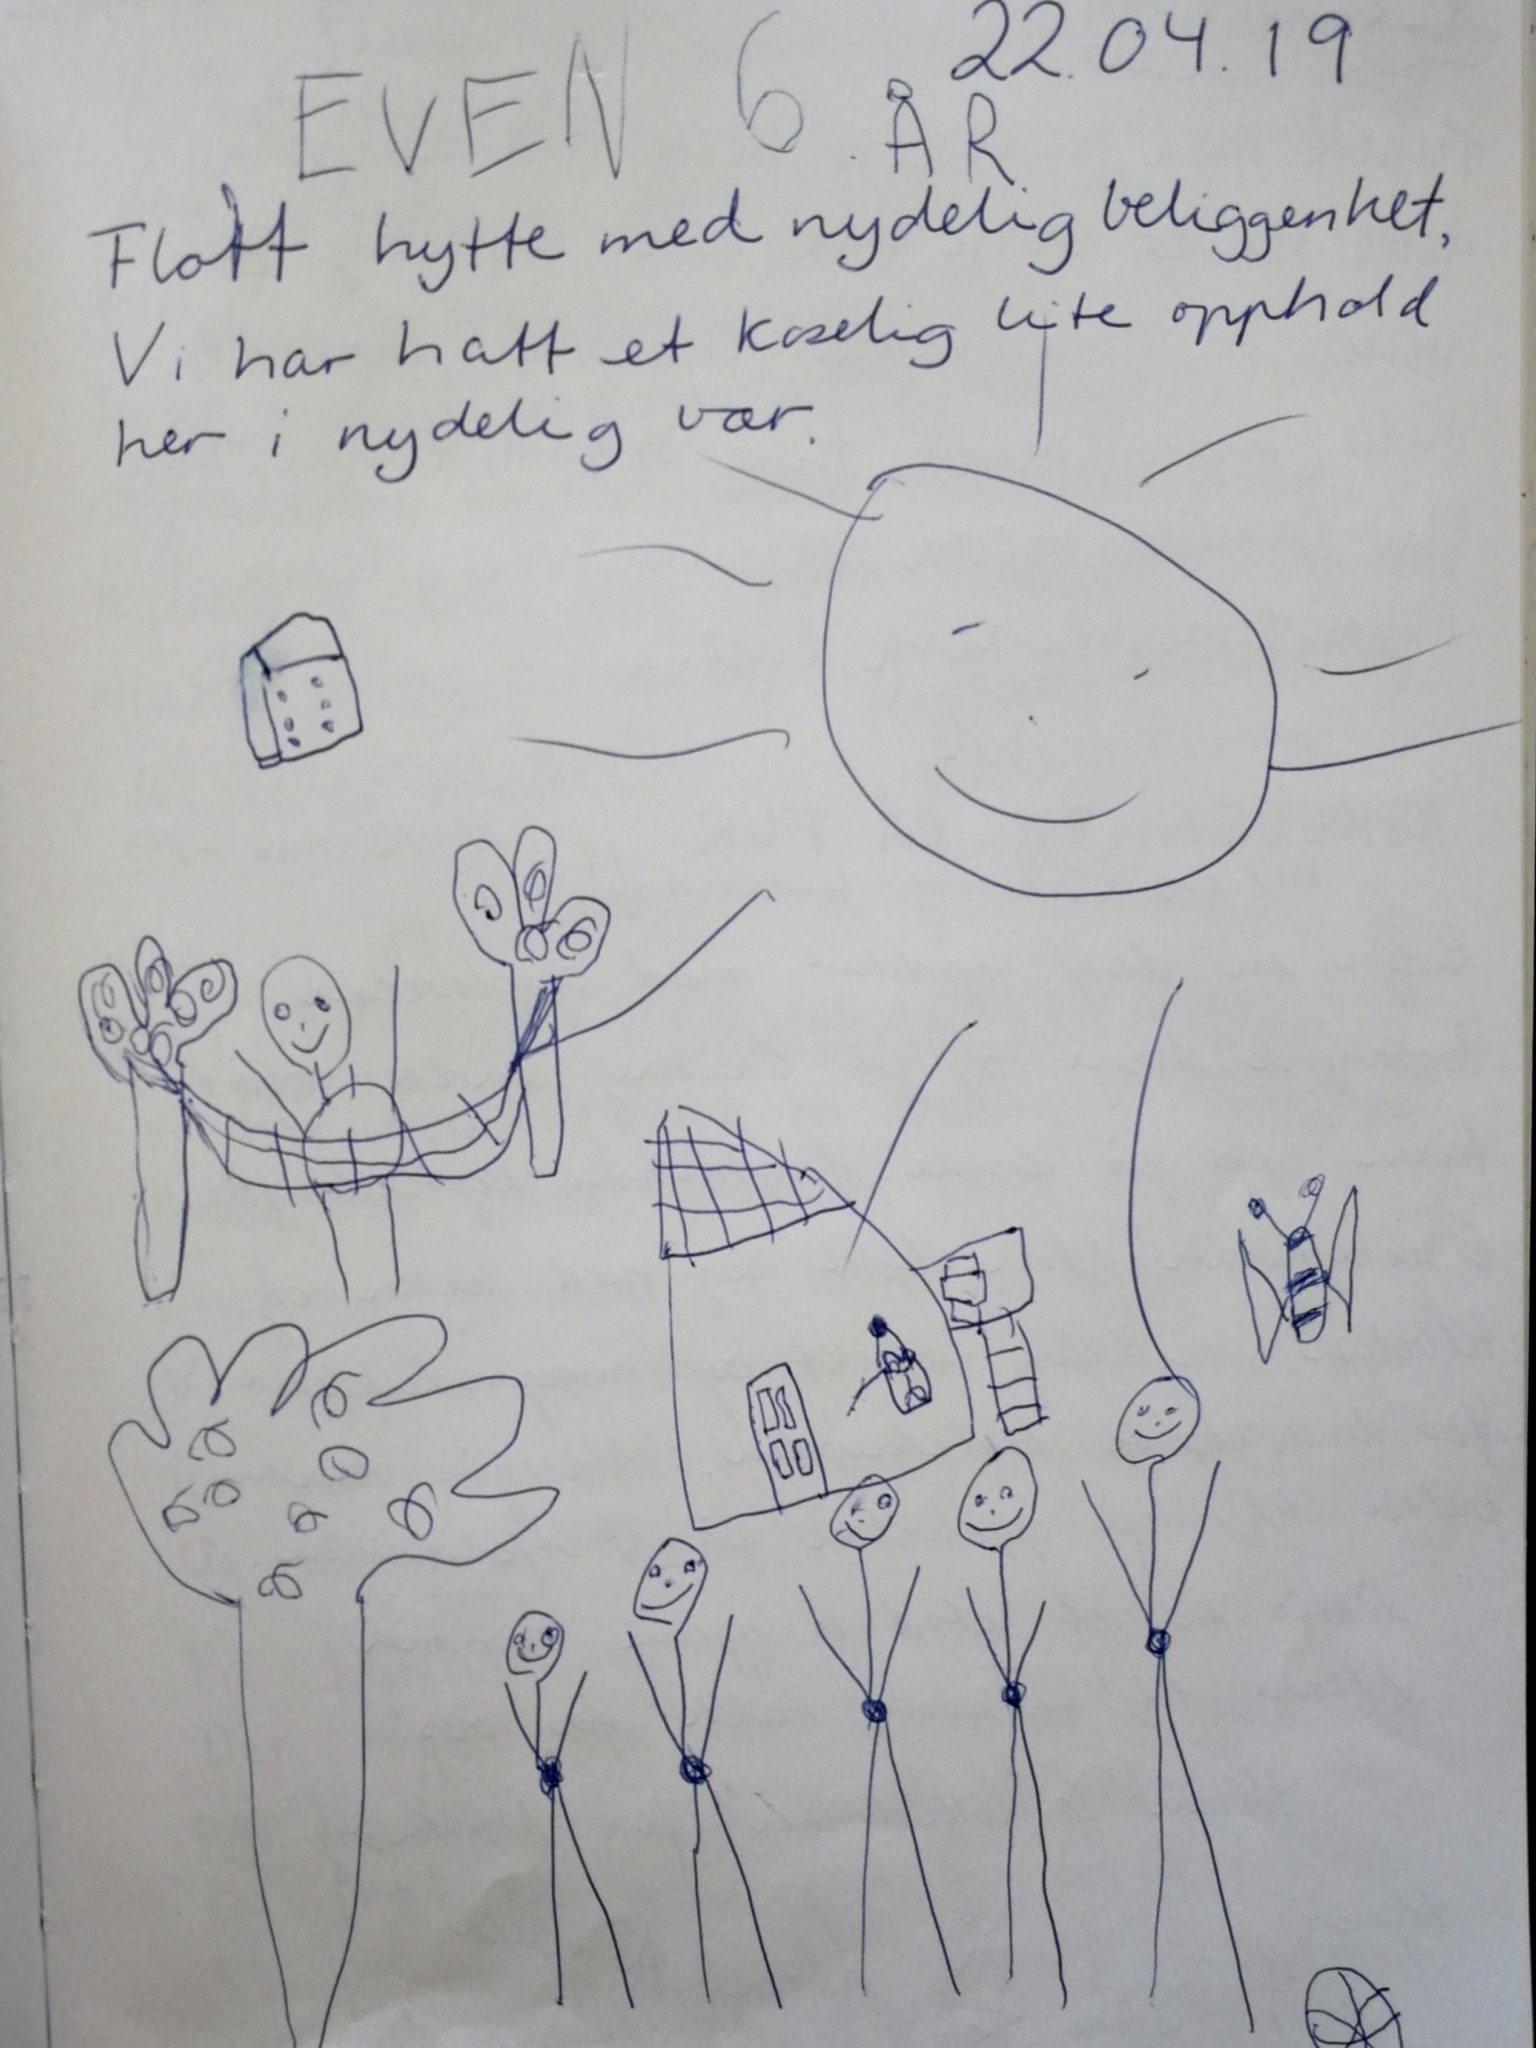 22.04.19
EVEN 6 ÅR
Flott hytte med nydelig beliggenhet,
Vi har hatt et koselig lite opphold
her i nydelig vær.